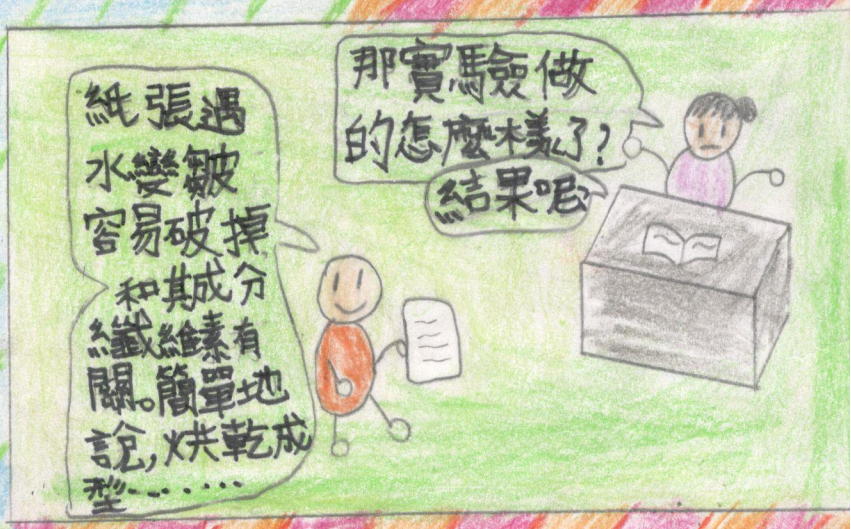 那實驗做
的怎麼樣了?
結果呢
紙張遇
水變皺
容易破掉
和其成分
纖維素有
關。簡單地
說,烘乾成
型‧‧‧‧‧‧